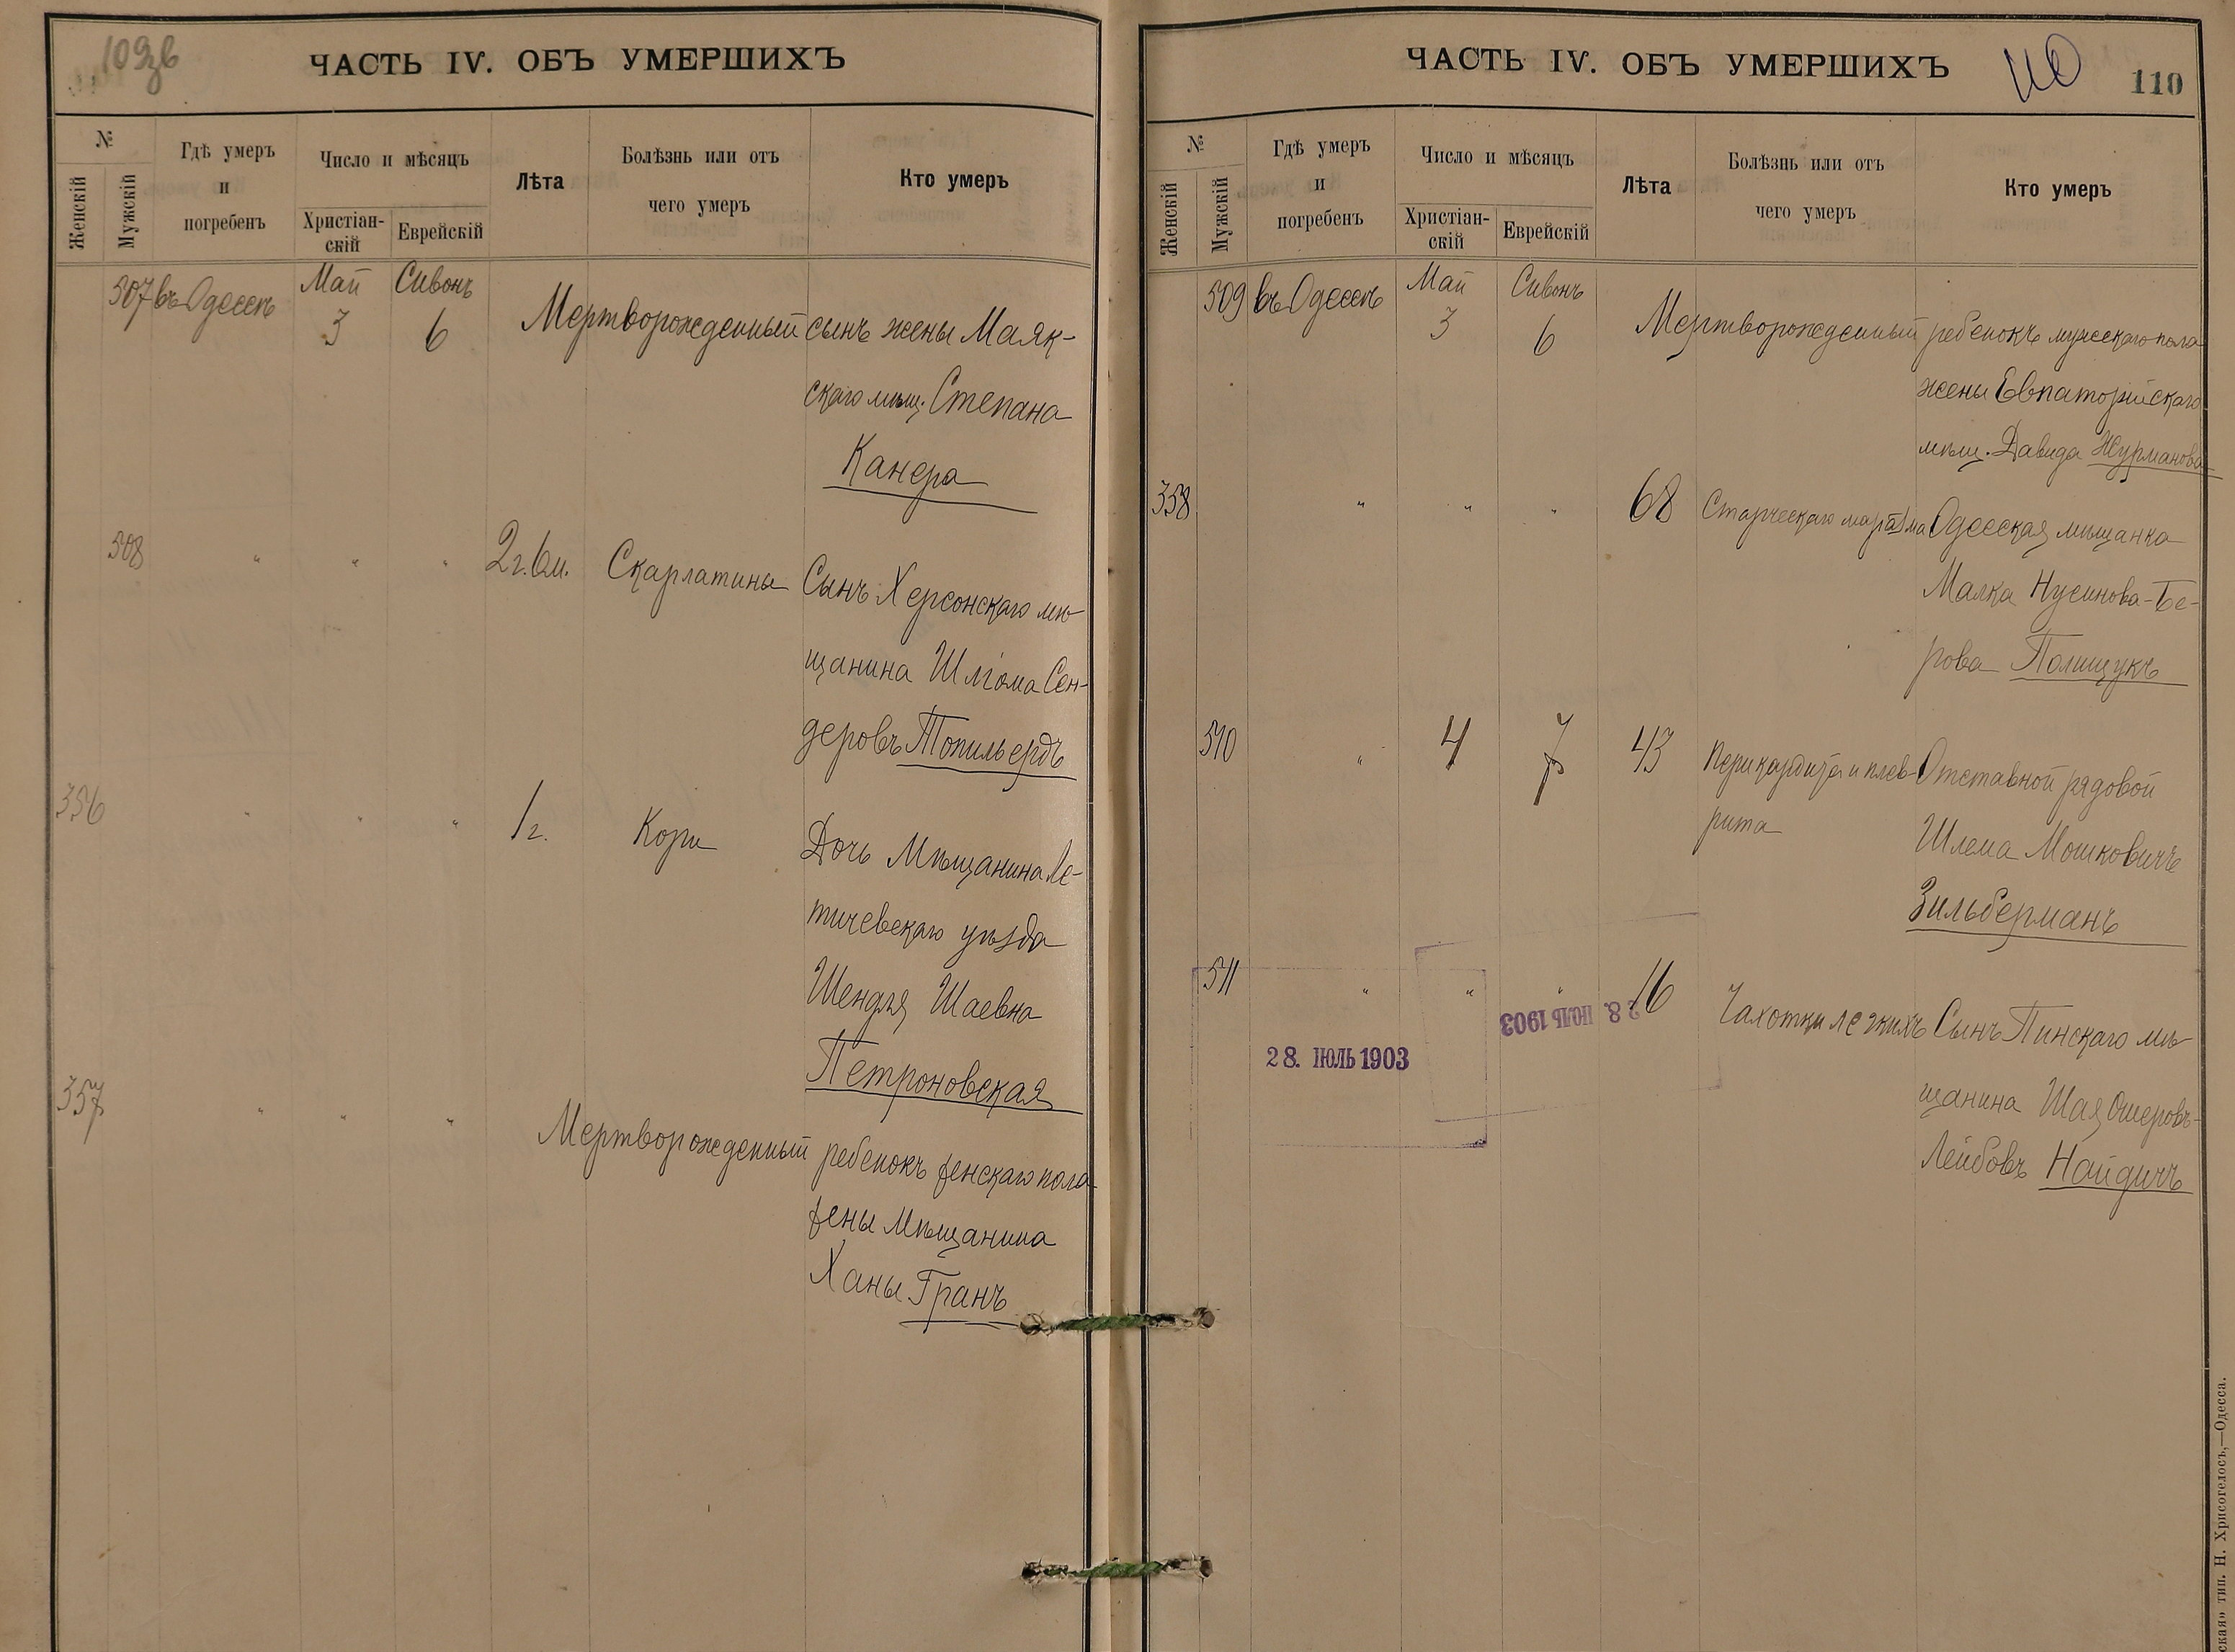 109зв
ЧАСТЬ IV. ОБЪ УМЕРШИХЪ
№
Женскій
Мужскій
Гдѣ умеръ
и
погребенъ
Число и мѣсяцъ
Христіан-
скій
Еврейскій
Лѣта
Болѣзнь или отъ
чего умеръ
Кто умеръ
507 въ Одессѣ Май Сивонъ
3 6 Мертворожденный сынъ жены Маяк-
скаго мѣщ. Степана
Канера
508 " " " 2 г. 6 м. Скарлатины Сынъ Херсонскаго мѣ-
щанина Шліома Сен-
деровъ Топильердъ
356 " " " 1 г. Кори Дочь Мѣщанина Ле-
тичевскаго уѣзда
Шендля Шаевна
Петроновская
357 " " " Мертворожденный ребенокъ женскаго пола
жены Мѣщанина
Ханы Гранъ
ЧАСТЬ IV. ОБЪ УМЕРШИХЪ
110
110
№
Женскій
Мужскій
Гдѣ умеръ
и
погребенъ
Число и мѣсяцъ
Христіан-
скій
Еврейскій
Лѣта
Болѣзнь или отъ
чего умеръ
Кто умеръ
509 въ Одессѣ Май Сивонъ
3 6 Мертворожденный ребенокъ мужескаго пола
жены Евпаторійскаго
мѣщ. Давида Журманова
358 " " " 68 Старческаго маразма Одесская мѣщанка
Малка Нусинова-Бе-
рова Полищукъ
510 " 4 7 43 Перикардита и плев- Отставной рядовой
рита Шлема Мошковичъ
Зильберманъ
511 " " " 16 Чахотки легкихъ Сынъ Пинскаго мѣ-
щанина Шая Ошеровъ-
Лейбовъ Найдичъ
28. ІЮЛЬ 1903
28. ІЮЛЬ 1903
тип. Н. Хрисогелосъ,—Одесса.